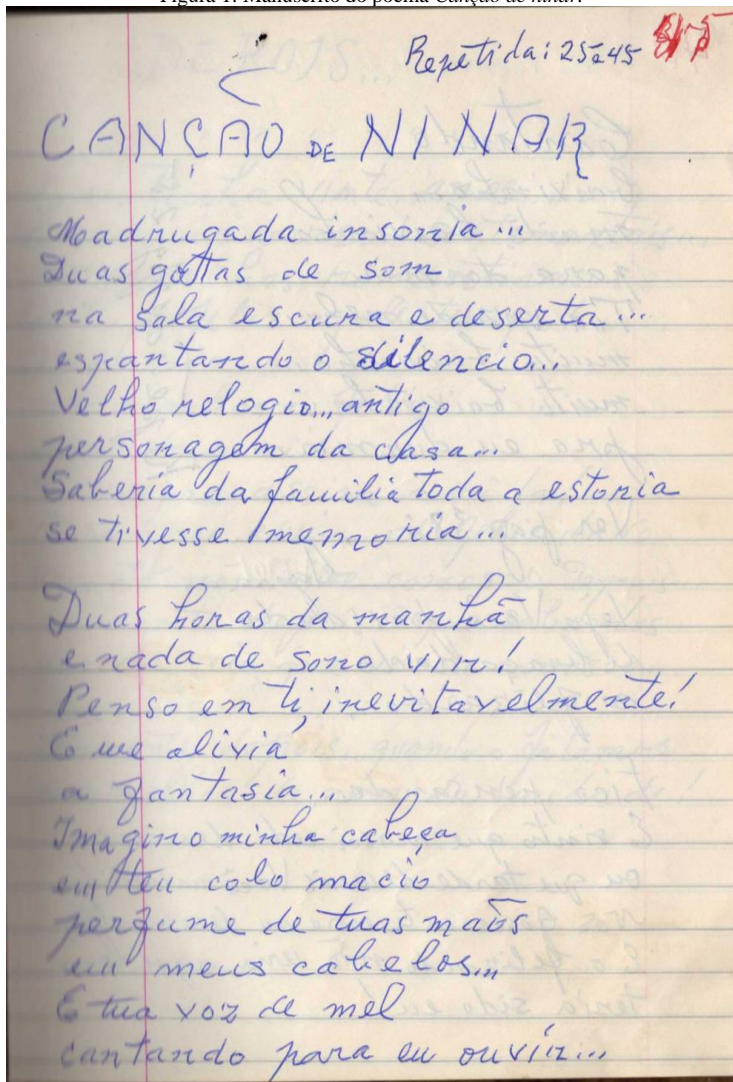 Figura 1: Manuscrito do poema Canção de ninar.
Repetida: 25 e 45
CANÇÃO DE NINAR
Madrugada insonia...
Duas gottas de som
na sala escura e deserta...
espantando o silencio...
Velho relogio... antigo
personagem da casa...
Saberia da familia toda a estoria
se tivesse memoria...
Duas horas da manhã
e nada de sono vir!
Penso em ti, inevitavelmente!
E me alivia
a fantasia...
Imagino minha cabeça
em teu colo macio
perfume de tuas mãos
em meus cabelos...
E tua voz de mel
cantando para eu ouvir...